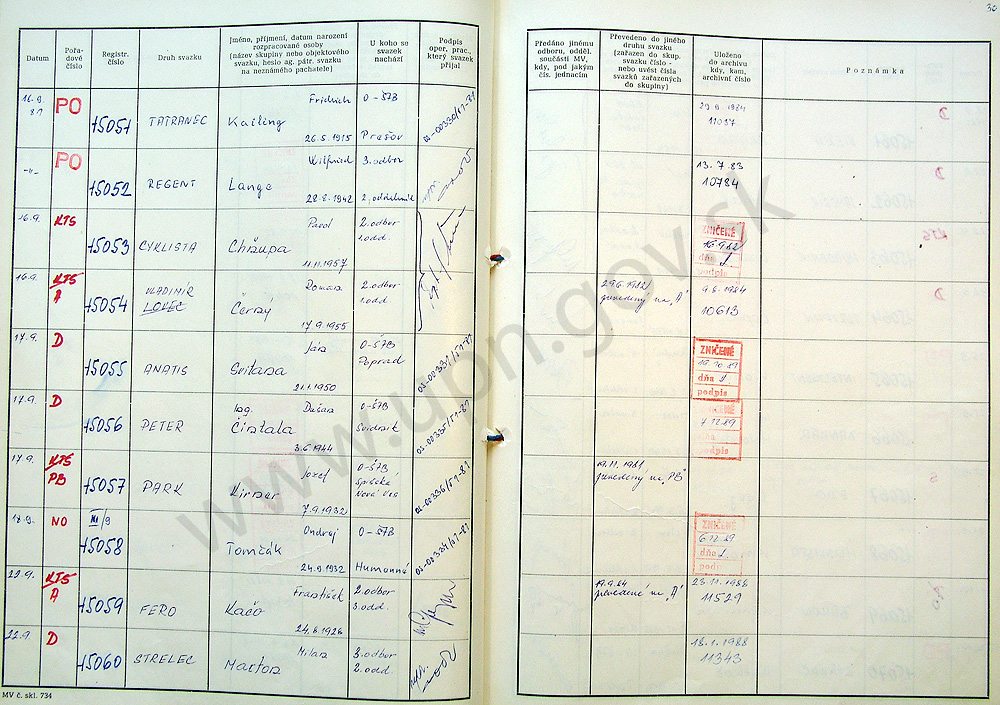 36
Datum
Pořa-
dové
číslo
Registr.
číslo
Druh svazku
Jméno, příjmení, datum narození
rozpracované osoby
(název skupiny nebo objektového
svazku, heslo ag. pátr. svazku
na neznámého pachatele)
U koho se
svazek
nachází
Podpis
oper. prac.,
který svazek
přijal
Předáno jinému
odboru, odděl.
součásti MV,
kdy, pod jakým
čís. jednacím
Převedeno do jiného
druhu svazku
(zařazen do skup.
svazku číslo -
nebo uvést čísla
svazků zařazených
do skupiny)
Uloženo
do archivu
kdy, kam,
archivní číslo
Poznámka
16.9.
81
PO
15051
TATRANEC
Fridrich
Kailing
26.5.1915
O-ŠTB
Prešov
29.9.1984
11037
D
-"-
PO
15052
REGENT
Wilfried
Lange
28.8.1942
3.odbor
13.7.83
10784
D
16.9.
KTS
15053
CYKLISTA
Pavol
Chřupa
11.11.1957
2.odbor
1.odd.
ZNIČENÉ
16.9.82
dňa
podpis
KTS
16.9.
KTS
A
15054
VLADIMÍR
LOVEC
Roman
Černý
17.9.1955
2.odbor
1.odd
29.6.1982
prevedený na "A"
9.8.1984
10613
D
17.9.
D
15055
ANATIS
Ján
Svitana
21.1.1950
O-ŠTB
Poprad
ZNIČENÉ
19.10.89
dňa
podpis
17.9.
D
15056
PETER
Ing. Dušan
Čistala
3.6.1944
O-ŠTB
Svidník
7.12.89
dňa
podpis
17.9.
KTS
PB
15057
PARK
Jozef
7.9.1932
O-ŠTB
Spišská
Nová Ves
19.11.1981
prevedený na "PB"
18.9.
NO
III/9
15058
Ondrej
Tomčák
24.9.1932
O-ŠTB
Humenné
ZNIČENÉ
6.12.89
dňa
podp
22.9.
KTS
A
15059
FERO
František
Kačo
24.8.1926
2.odbor
3.odd.
19.9.84
prevedené na "A"
23.11.1988
11529
22.9.
D
15060
STRELEC
Milan
Marton
3.odbor
2.odd.
18.1.1988
11343
MV č. skl. 734
www.upn.gov.sk